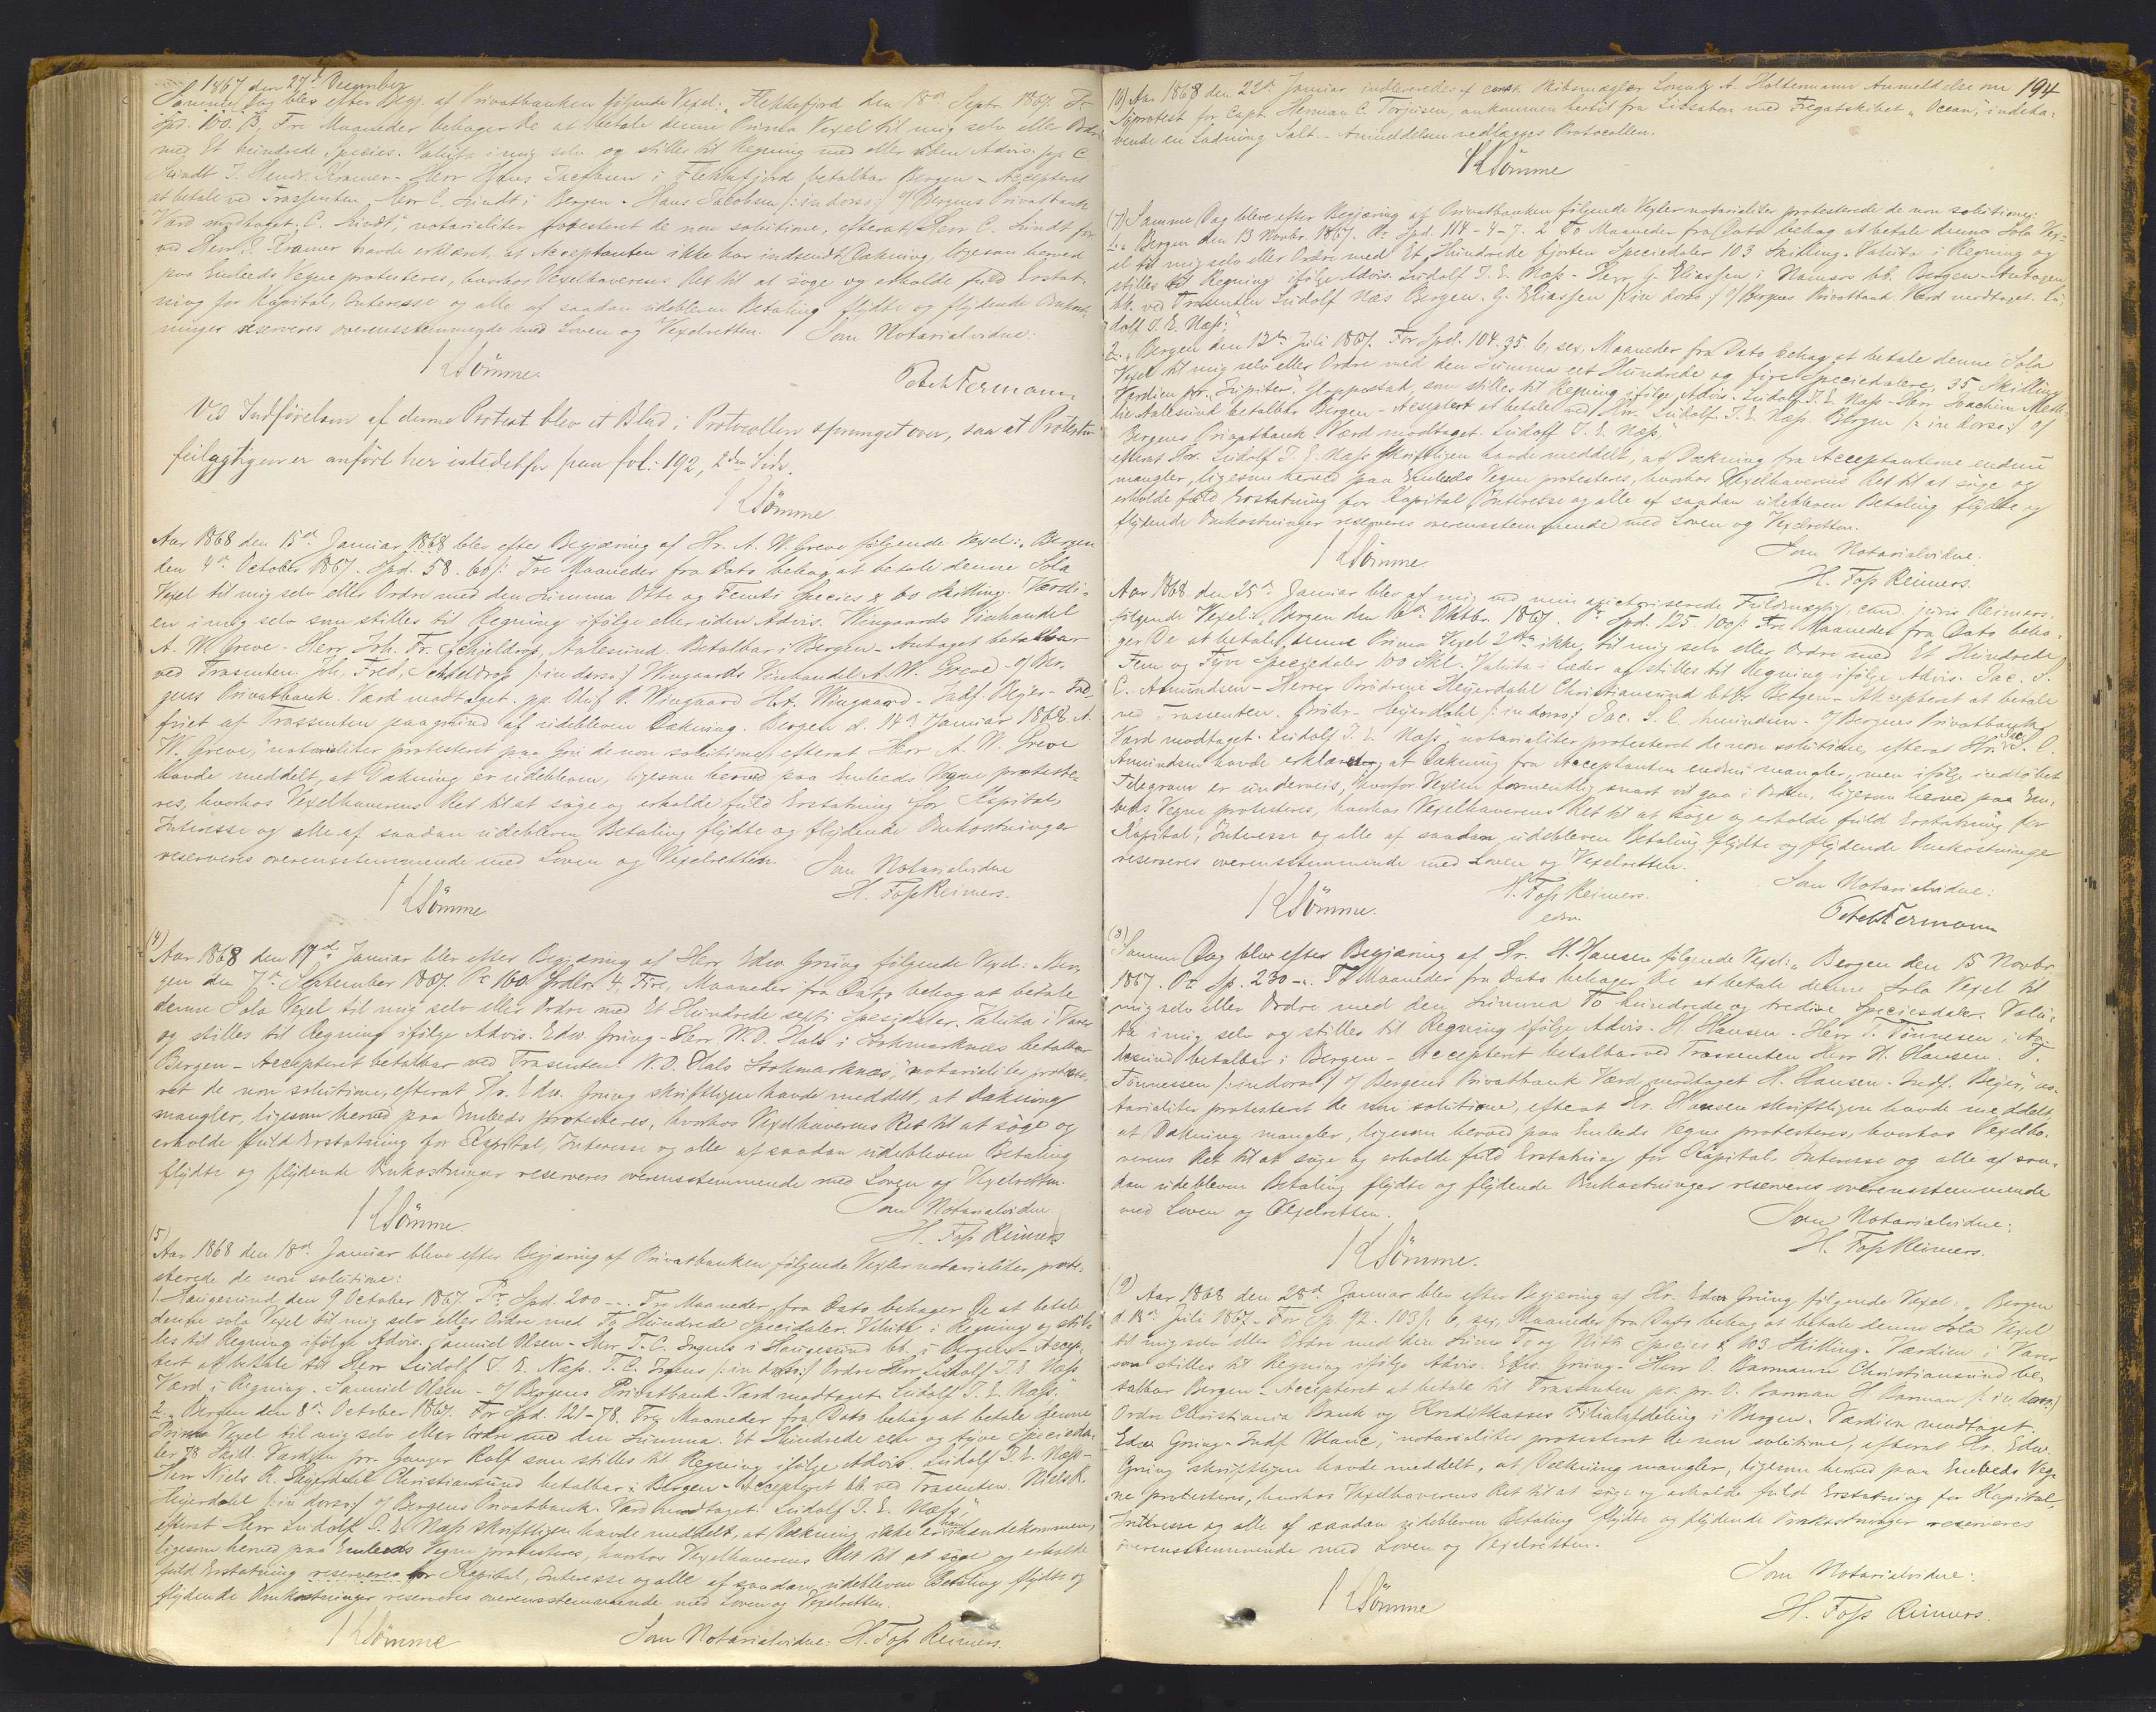 1867 den 27de December
Samme Dag blev efter Begj. af Privatbanken følgende Vexel: „Flekkefjord den 18de Septr. 1867. Pr
Spd. 100. Pr, Tre Maaneder behager De at betale denne Prima Vexel til mig selv eller Ordre
med Et hundrede Species. Valuta i mig selv og stilles til Regning med eller uden Advis. pp C.
Sundt J. Hendr. Kramer - Herr Hans Jacobsen i Flekkefjord betalbar Bergen - Accepteret
at betale ved Trassenten Herr C. Sundt i Bergen - Hans Jacobsen /: in dorso :/ o/ Bergens Privatbank
Værd modtaget. C. Sundt", notarialiter protesteret de non solutione, efterat Herr C. Sundt for
ved Hendr. Kramer havde erklæret, at Acceptanten ikke har indsendt Dækning, ligesom herved
paa Embeds Vegne protesteres, hvorhos Vexelhaverens Ret til at søge og erholde fuld Erstat-
ning for Kapital, Interesse og alle af saadan udebleven Betaling flydte og flydende Omkost-
ninger reserveres overensstemmende med Loven og Vexelretten. Som Notarialvidne:
Sömme
Ved Indførelsen af denne Protest blev et Blad i Protocollen sprunget over, saa at Protesten
feilagtigen er anført her istedetfor paa fol: 192, 2den Side.
Sömme
Aar 1868 den 15de Januar 1868 blev efter Begjæring af Hr. A. W. Greve følgende Vexel: „Bergen
den 4de October 1867. Spd. 58. 60 /: Tre Maaneder fra Dato behag at betale denne Sola
Vexel til mig selv eller Ordre med den Summa Otte og Femti Species & 60 Skilling. Værdi-
en i mig selv som stilles til Regning ifølge eller uden Advis. Wingaards Vinhandel
A. W. Greve - Herr Joh. Fr. Schjeldrop, Aalesund. Betalbar i Bergen - Antaget betalbar
ved Trasenten Joh. Fred. Schjeldrop /: in dorso :/ Wingaards Vinhandel A. W. Greve - o/ Ber-
gens Privatbank. Værd modtaget. pp. Wingaard Hst. Wingaard - Indf. Beyer - Ind-
friet af Trassenten paagrund af udebleven Dækning. Bergen d. 14de Januar 1868 A.
W. Greve," notarialiter protesteret de non solutione, efterat Herr A. W. Greve
havde meddelt, at Dækning er udebleven, ligesom herved paa Embeds Vegne proteste-
res, hvorhos Vexelhaverens Ret til at søge og erholde fuld Erstatning for Kapital,
Interesse og alle af saadan udebleven Betaling flydte og flydende Omkostninger
reserveres overensstemmende med Loven og Vexelretten. Som Notarialvidne
H. Foss Reimers.
Sömme
(4) Aar 1868 den 17de Januar blev efter Begjæring af Herr Edw. Grung følgende Vexel: „Ber-
gen den 7de September 1867. Pr 160 Spdlr. 4, Fire, Maaneder fra Dato behag at betale
denne Sola Vexel til mig selv eller Ordre med Et Hundrede sexti Spesidaler. Valuta i Varer
og stilles til Regning ifølge Advis. Edw. Grung - Herr W. D. Hals i Stokmarknæs betalbar
Bergen - Accepteret betalbar ved Trasenten W. D. Hals Stokmarknæs," notarialiter proteste-
ret de non solutione, efterat Hr. Edw. Grung skriftligen havde meddelt, at Dækning
mangler, ligesom herved paa Embeds protesteres, hvorhos Vexelhaverens Ret til at søge og
erholde fuld Erstatning for Kapital, Interesse og alle af saadan udebleven Betaling
flydte og flydende Omkostninger reserveres overensstemmende med Loven og Vexelretten.
Sömme
Som Notarialvidne
H. Foss Reimers
(5)
Aar 1868 den 18de Januar bleve efter Begjæring af Privatbanken følgende Vexler notarialiter prote-
sterede de non solutione:
1. Haugesund den 9 October 1867. Pr Spd. 200 --- Tre Maaneder fra Dato behager De at betale
denne sola Vexel til mig selv eller Ordre med To Hundrede Specidaler. Valuta i Regning og stil-
les til Regning ifølge Advis. Samuel Olsen - Herr T. C. i Haugesund bb. i Bergen - Accep-
tert at betale til Herr Ludolf J. E. Næss. T. C. /: in dorso :/ Ordre Herr Ludolf J. E. Næss
Værd i Regning. Samuel Olsen - o/ Bergens Privatbank. Værd modtaget Ludolf J. E. Næss."
2. „Bergen den 8de October 1867. For Spd. 121-78. Tre Maaneder fra Dato behag at betale denne
Prima Vexel til mig selv eller Ordre med den Summa. Et Hundrede een og tyve Speciesda-
ler 78 Skill. Værdien pr. Ganger Rolf som stilles til Regning ifølge Advis. Ludolf J. E. Næss -
Herr Niels R. Heyerdahl Christiansund betalbar i Bergen - Accepteret bb. ved Trasenten. Niels R.
Heierdahl /: in dorso :/ o/ Bergens Privatbank. Værd modtaget. Ludolf J. E. Næss"
efterat Herr Ludolf J. E. Næss skriftligen havde meddelt, at Dækning ikke er ham ihændekommen,
ligesom herved paa Embeds Vegne protesteres, hvorhos Vexelhaverens Ret til at søge og erholde
fuld Erstatning reserveres for Kapital, Interesse og alle af saadan udebleven Betaling flydte og
flydende Omkostninger reserveres overensstemmende med Loven og Vexelretten.
Sömme Som Notarialvidne: H. Foss Reimers.
194
(6) Aar 1868 den 22de Januar indleveredes af const. Skibsmægler Lorentz A. Holtermann Anmeldelse om
Søprotest for Capt. Herman C. Torjusen, ankommen hertil fra Lissabon med Fregatskibet „Ocean," indeha-
vende en Ladning Salt. - Anmeldelsen vedlægges Protocollen.
Sömme
(7) Samme Dag bleve efter Begjæring af Privatbanken følgende Vexler notarialiter protesterede de non solutione:
1. „Bergen den 13 Novbr. 1867. Pr Spd. 114-4-7. 2 To Maaneder fra Dato behag at betale denne Sola Vex-
el til mig selv eller Ordre med Et Hundrede fjorten Speciedaler 103 Skilling. Valuta i Regning og
stilles til Regning ifølge Advis. Ludolf J. E. Næss - Herr G. Eliassen i Namsos bb. Bergen - Antagen
bb. ved Trasenten Ludolf Næs Bergen. G. Eliassen /: in dorso :/ o/ Bergens Privatbank Værd modtaget. Lu-
dolf J. E. Næss;"
2. „Bergen den 12te Juli 1867. For Spd. 104.35. 6, sex, Maaneder fra Dato behag at betale denne Sola
Vexel til mig selv eller Ordre med den Summa eet Hundrede og fire Speciedalere, 35 Skilling
Værdien pr. „Jupiter", som stilles til Regning ifølge Advis. Ludolf J. E. Næss - Herr Joachim
Aalesund betalbar Bergen - Acceptert at betales ved Hr. Ludolf J. E. Næss. Bergen /: in dorso :/ o/
Bergens Privatbank. Værd modtaget. Ludolf J. E. Næss,"
efterat Hr. Ludolf J. E. Næss skriftligen havde meddelt, at Dækning fra Acceptanterne endnu
mangler, ligesom herved paa Embeds Vegne protesteres, hvorhos Vexelhaverens Ret til at søge og
erholde fuld Erstatning for Kapital, Interesse og alle af saadan udebleven Betaling flydte og
flydende Omkostninger reserveres overensstemmende med Loven og Vexelretten.
Sömme
Som Notarialvidne.
H. Foss Reimers.
Aar 1868 den 25de Januar blev af mig ved min autoriserede Fuldmægtig, cand. juris Reimers,
følgende Vexel: „Bergen den 16de Oktbr. 1867. Pr Spd. 125. 100 /: Tre Maaneder fra Dato beha-
ger De at betale denne Prima Vexel 2den ikke, til mig selv eller Ordre med Et Hundrede
Fem og Tyve Speciedaler 100 Skl. Valuta - Læder og stilles til Regning ifølge Advis. Jac. S.
C. Amundsen - Herrer Brødrene Heyerdahl Christiansund bth. Bergen - Akcepteret at betale
ved Trassenten. Brødr. Heyerdahl /: in dorso :/ Jac. S. C. Amundsen - o/ Bergens Privatbank
Værd modtaget. Ludolf J. E. Næss," notarialiter protesteret de non solutione, efterat Hr. Jac. S. C.
Amundsen havde erklæret, at Dækning fra Acceptanten endnu mangler, men ifølge indløbet
Telegram er underveis, hvorfor Vexlen formentlig snart vil gaa i Orden, ligesom herved paa Em-
beds Vegne protesteres, hvorhos Vexelhaverens Ret til at søge og erholde fuld Erstatning for
Kapital, Interesse og alle af saadan udebleven Betaling flydte og flydende Omkostninger
reserveres overensstemmende med Loven og Vexelretten.
Sömme. H. Foss Reimers. Som Notarialvidne:
edsv.
(8) Samme Dag blev efter Begjæring af Hr. H. Hansen følgende Vexel: „Bergen den 15 Novbr.
1867. Pr Sp. 230 -. To Maaneder fra Dato behager De at betale denne Sola Vexel til
mig selv eller Ordre med den Summa To hundrede og tredive Speciesdaler. Valu-
ta i mig selv og stilles til Regning ifølge Advis. H. Hansen. Herr T. Tönnesen i Aa-
lesund betalbar i Bergen - Accepteret betalbar ved Trassenten Herr H. Hansen. T.
Tönnessen /: in dorso :/ o/ Bergens Privatbank Værd modtaget H. Hansen. Indf. Beyer," no-
tarialiter protesteret de non solutione, efterat Hr. Hansen skriftligen havde meddelt,
at Dækning mangler, ligesom herved paa Embeds Vegne protesteres, hvorhos Vexelha-
verens Ret til at søge og erholde fuld Erstatning for Kapital, Interesse og alle af saa-
dan udebleven Betaling flydte og flydende Omkostninger reserveres overensstemmende
med Loven og Vexelretten.
Som Notarialvidne:
H. Foss Reimers.
Sömme.
(9) Aar 1868 den 28de Januar blev efter Begjæring af Hr. Edw. Grung følgende Vexel: „Bergen
d. 18de Juli 1867. For Sp. 92. 103 /: 6, sex, Maaneder fra Dato behag at betale denne Sola Vexel
til mig selv eller Ordre med den Suma To og Nitti Species & 103 Skilling. Værdien i Varer
som stilles til Regning ifølge Advis. Edw. Grung. Herr O. Barmann Christiansund be-
talbar Bergen - Accepteret at betale til Trassenten pr. pr. O. Barman H Barman /: in dorso :/
Ordre Christiania Bank og Kreditkasses Filialafdeling i Bergen. Værdien modtaget
Edw. Grung - Indf Blanc," notarialiter protesteret de non solutione, efterat Hr. Edw.
Grung skriftligen havde meddelt, at Dækning mangler, ligesom herved paa Embeds Veg-
ne protesteres, hvorhos Vexelhaverens Ret til at søge og erholde fuld Erstatning for Kapital,
Interesse og alle af saadan udebleven Betaling flydte og flydende Omkostninger reserveres
overensstemmende med Loven og Vexelretten.
Som Notarialvidne:
Sömme
H. Foss Reimers.